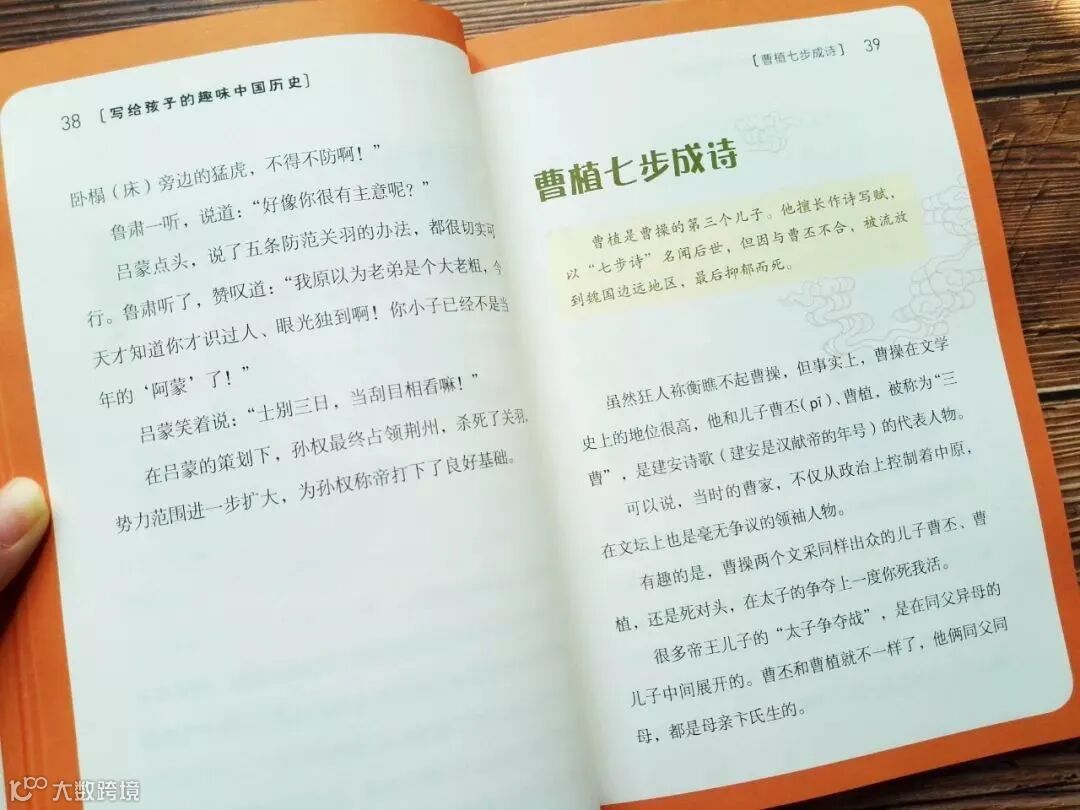 38 [写给孩子的趣味中国历史]
卧榻（床）旁边的猛虎，不得不防啊！”
鲁肃一听，说道：“好像你很有主意呢？”
吕蒙点头，说了五条防范关羽的办法，都很切实可
行。鲁肃听了，赞叹道：“我原以为老弟是个大老粗，今
天才知道你才识过人、眼光独到啊！你小子已经不是当
年的‘阿蒙’了！”
吕蒙笑着说：“士别三日，当刮目相看嘛！”
在吕蒙的策划下，孙权最终占领荆州，杀死了关羽，
势力范围进一步扩大，为孙权称帝打下了良好基础。
[曹植七步成诗] 39
曹植七步成诗
曹植是曹操的第三个儿子。他擅长作诗写赋，
以“七步诗”名闻后世，但因与曹丕不合，被流放
到魏国边远地区，最后抑郁而死。
虽然狂人祢衡瞧不起曹操，但事实上，曹操在文学
史上的地位很高，他和儿子曹丕（pī）、曹植，被称为“三
曹”，是建安诗歌（建安是汉献帝的年号）的代表人物。
可以说，当时的曹家，不仅从政治上控制着中原，
在文坛上也是毫无争议的领袖人物。
有趣的是，曹操两个文采同样出众的儿子曹丕、曹
植，还是死对头，在太子的争夺上一度你死我活。
很多帝王儿子的“太子争夺战”，是在同父异母的
儿子中间展开的。曹丕和曹植就不一样了，他俩同父同
母，都是母亲卞氏生的。
大数跨境